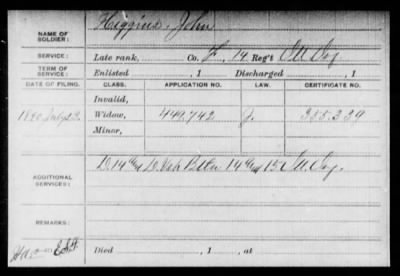 NAME OF SOLDIER: Higgins, John
SERVICE: Late rank, Co. F, 14 Reg't Ill. Inf.
TERM OF SERVICE: Enlisted , 1 Discharged , 1
DATE OF FILING. CLASS. APPLICATION NO. LAW. CERTIFICATE NO.
Invalid,
1890 July 23 Widow, 449,742 J. 355.339
Minor,
ADDITIONAL SERVICES: D 14 & 15 Vet Battn 14 and 15 Ill. Inf.
REMARKS:
Died , 1 , at